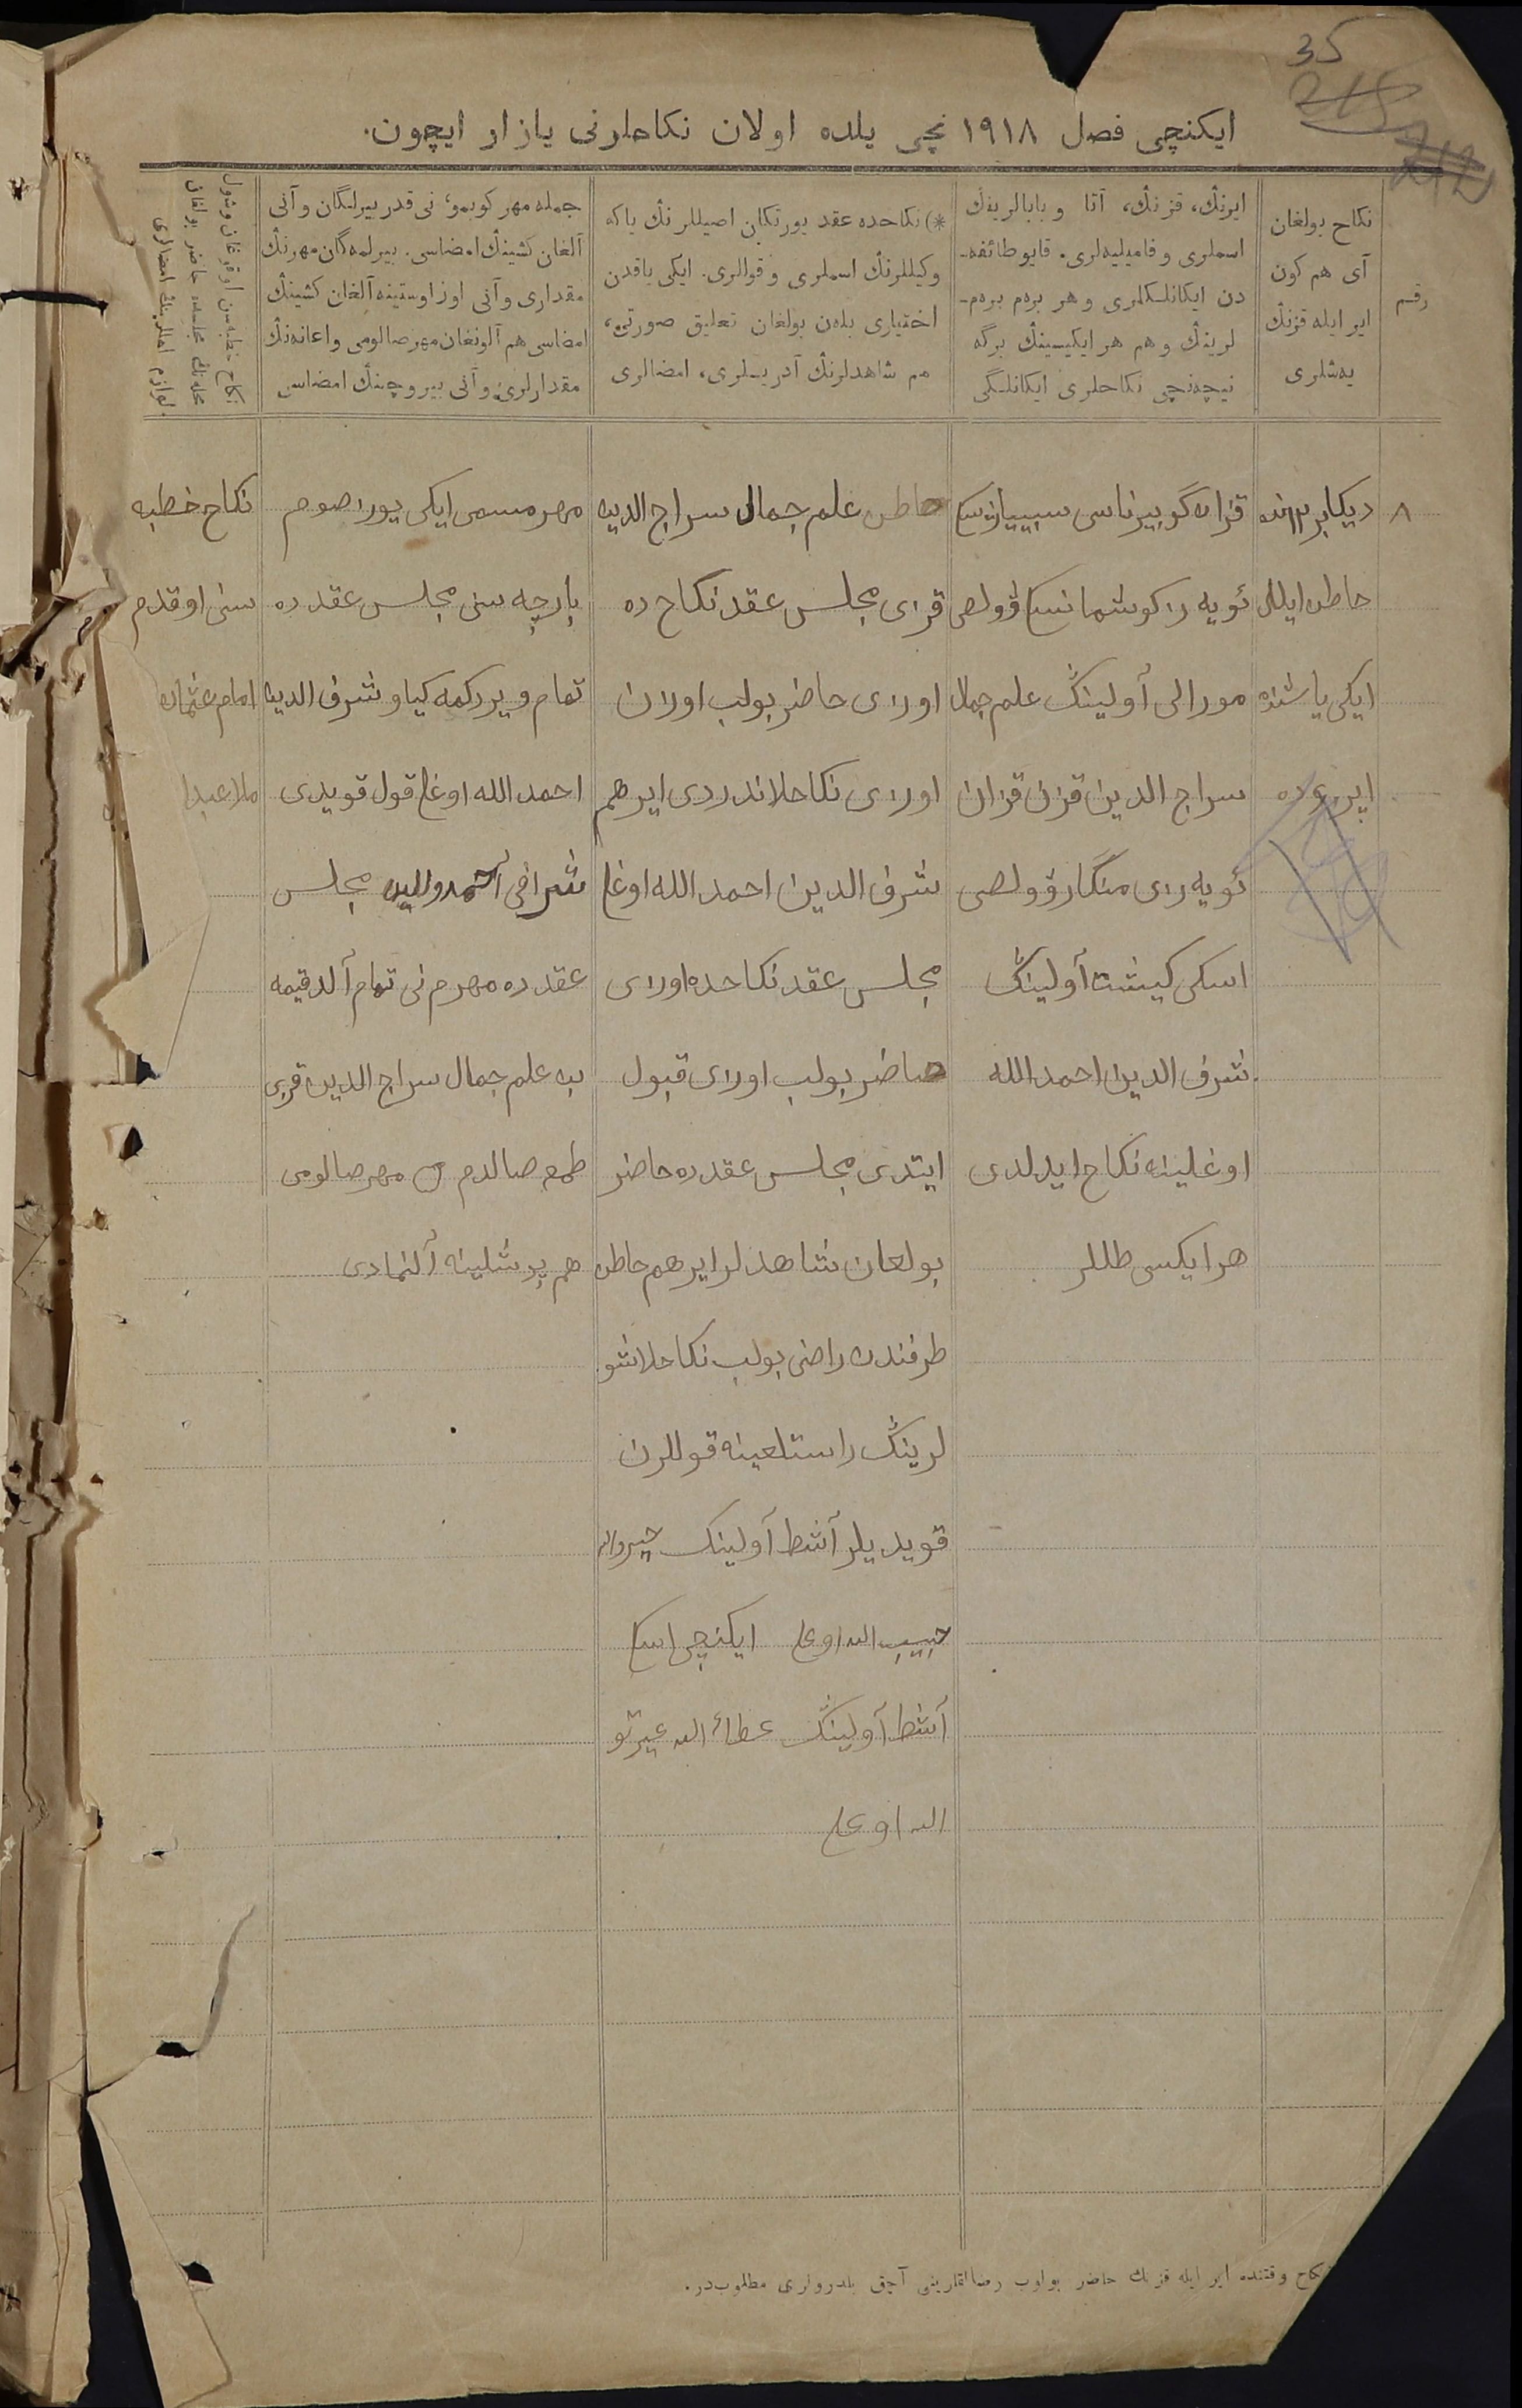 35
ایکنچی فصل ۱۹۱۸ نچی یلده اولان نکاحلرنی یازار ایچون.
رقم
نکاح بولغان
آی هم کون
ایر ایله قزنڭ
یه‌شلری
ایرنڭ، قزنڭ، آتا و بابالرینڭ
اسملری و فامیلیه‌لری. قایو طائفه‌-
دن ایکانلکلری و هر بره‌م بره‌م-
لرینڭ و هم هر ایکیسینڭ برگه
نیچه‌نچی نکاحلری ایکانلگی
*) نکاحده عقد یورتکان اصیللرنڭ یاکه
وکیللرنڭ اسملری و قوللری. ایکی یاقدن
اختیاری بله‌ن بولغان تعلیق صورتی،
هم شاهدلرنڭ آدریسلری، امضالری
جمله مهر کوبمو، نی قدر بیرلگان و آنی
آلغان کشینڭ امضاسی. بیرلمه‌گان مهرنڭ
مقداری و آنی اوز اوستینه آلغان کشینڭ
امضاسی هم آلونغان مهر صالومی و اعانه‌نڭ
مقدارلری و آنی بیروچینڭ امضاسی
نکاح خطبه‌سن اوقوغان و شول
محله‌نڭ مجلسده حاضر بولغان
لوازم اهللرینڭ امضالری
۸
دیکابر ۳نده
خاطن ایللی
ایکی یاشنده
ایر ده
قزان گوبیرناسی سبییازسکی
ئویه زا کوشمانسکی ڤولصی
مورالی آولینڭ علم جمال
سراج الدین قزن قزان
ئویه زی منگار ڤولصی
اسکی کیشت آولینڭ
شرف الدین احمد الله
اوغلینه نکاح ایدلدی
هر ایکسی طللر
خاطن علم جمال سراج الدین
قزی مجلس عقد نکاح ده
اوزی حاضر بولب اوزن
اوزی نکاحلاندردی ایر هم
شرف الدین احمد الله اوغلی
مجلس عقد نکاحده اوزی
حاضر بولب اوزی قبول
ایتدی مجلس عقد ده حاضر
بولغان شاهدلر ایر هم خاطن
طرفندن راضی بولب نکاحلاشو
لرینڭ راستلغینه قوللرن
قویدیلر آشط آولینڭ
حبیب الله اوغلی ایکنچی
آشط آولینڭ عطاء الله
الله اوغلی
مهر مسمی ایکی یوز صوم
بارچه سنی مجلس عقد ده
تمام ویردکمه کیاو شرف الدین
احمد الله اوغلی قول قویدی
مجلس
عقد ده مهرم نی تمام آلدقیمه
علم جمال سراج الدین قزی
طمغه صالدم مهر صالومی
هم آلنمادی
نکاح خطبه
سنی اوقدم
امام عثمان
ملا عبد
نکاح وقتنده ایر ایله قزنڭ حاضر بولوب رضالقلرینی آچق بلدرولری مطلوبدر.